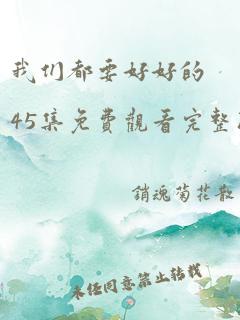 我们都要好好的
45集免费觀看完整
銷魂菊花散
未经同意禁止转载